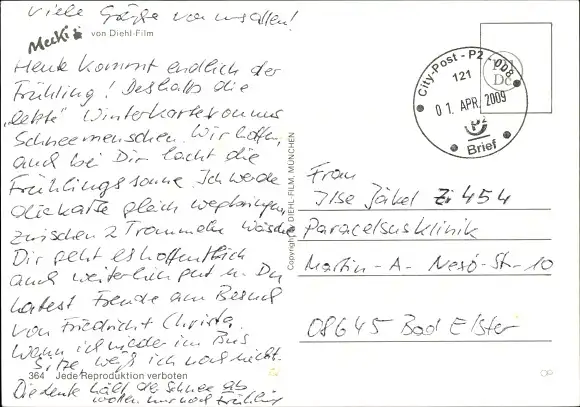 viele Grüße von uns allen!
Mecki
von Diehl-Film
Heute kommt endlich der
Frühling! Deshalb die
„letzte" Winterkarte von uns
Schneemenschen. Wir hoffen,
auch bei Dir lacht die
Frühlingssonne. Ich werde
die Karte gleich wegbringen,
zwischen 2 Trommeln Wäsche
Dir geht es hoffentlich
auch weiterhin gut u. Du
hattest Freude am Besuch
von Friedrich + Christa.
Wann ich wieder im Bus
sitze, weiß ich noch nicht.
364 Jede Reproduktion verboten
hält der Schnee ab
wollen nur noch Frühling
Copyright by DIEHL-FILM, MÜNCHEN
City-Post - P2 - 008
121
01. APR. 2009
P2
Brief
Frau
Ilse Jäkel Zi 454
Paracelsusklinik
Martin-A.-Nexö-Str. 10
08645 Bad Elster